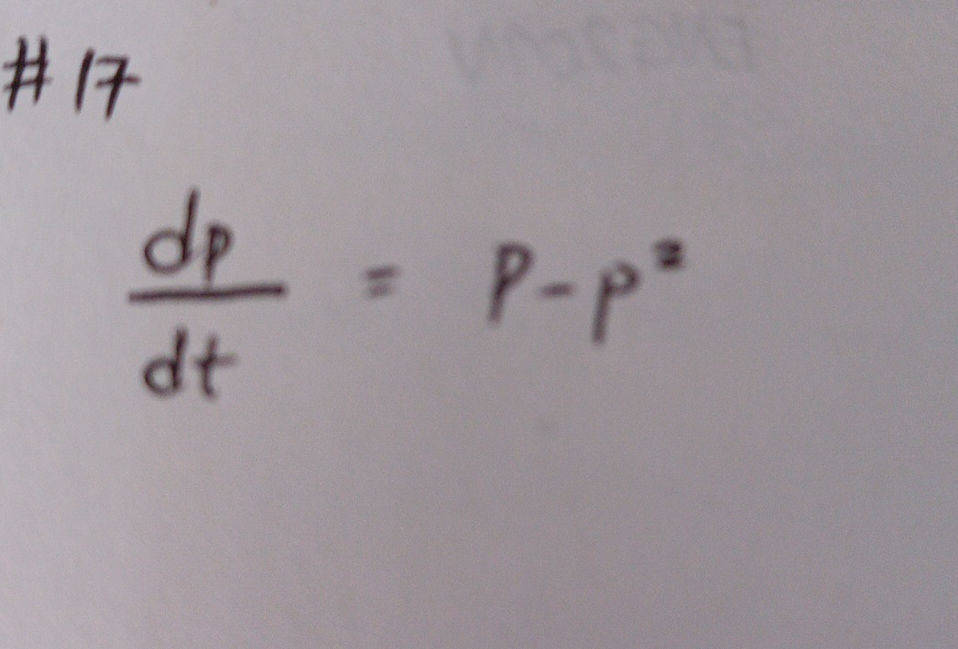 #17
dp/dt = p - p²